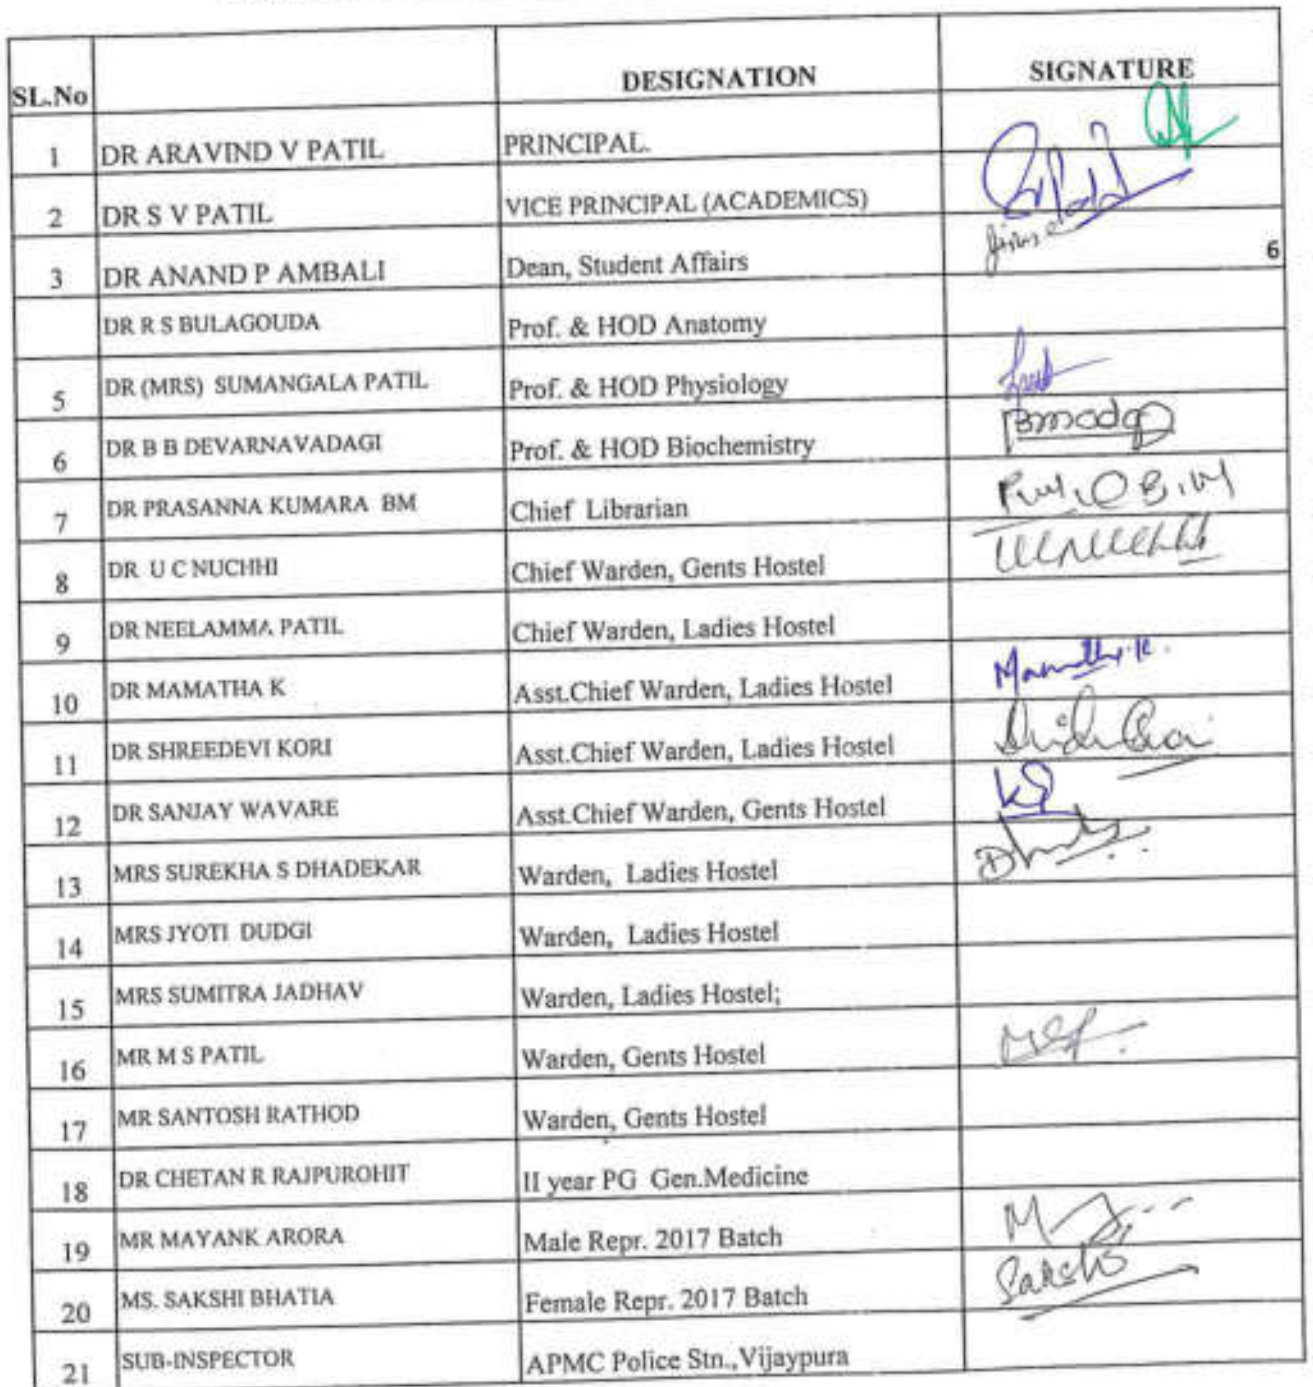 SL.No DESIGNATION SIGNATURE
1 DR ARAVIND V PATIL PRINCIPAL.
2 DR S V PATIL VICE PRINCIPAL (ACADEMICS)
3 DR ANAND P AMBALI Dean, Student Affairs 6
DR R S BULAGOUDA Prof. & HOD Anatomy
5 DR (MRS) SUMANGALA PATIL Prof. & HOD Physiology
6 DR B B DEVARNAVADAGI Prof. & HOD Biochemistry
7 DR PRASANNA KUMARA BM Chief Librarian
8 DR U C NUCHHI Chief Warden, Gents Hostel
9 DR NEELAMMA PATIL Chief Warden, Ladies Hostel
10 DR MAMATHA K Asst.Chief Warden, Ladies Hostel Mamatha.K.
11 DR SHREEDEVI KORI Asst.Chief Warden, Ladies Hostel
12 DR SANJAY WAVARE Asst.Chief Warden, Gents Hostel
13 MRS SUREKHA S DHADEKAR Warden, Ladies Hostel
14 MRS JYOTI DUDGI Warden, Ladies Hostel
15 MRS SUMITRA JADHAV Warden, Ladies Hostel;
16 MR M S PATIL Warden, Gents Hostel
17 MR SANTOSH RATHOD Warden, Gents Hostel
18 DR CHETAN R RAJPUROHIT II year PG Gen.Medicine
19 MR MAYANK ARORA Male Repr. 2017 Batch
20 MS. SAKSHI BHATIA Female Repr. 2017 Batch Sakshi
21 SUB-INSPECTOR APMC Police Stn.,Vijaypura